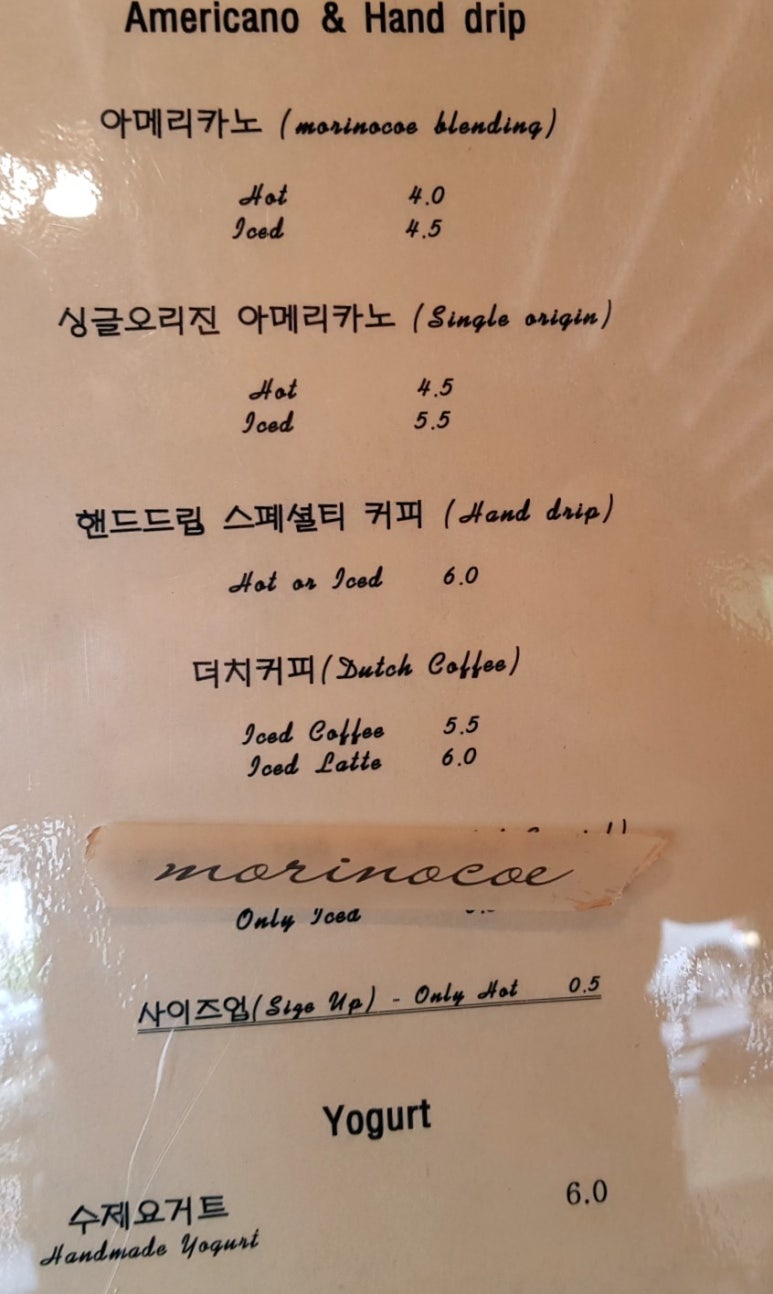 Americano & Hand drip
아메리카노 (morinocoe blending)
Hot 4.0
Iced 4.5
싱글오리진 아메리카노 (Single origin)
Hot 4.5
Iced 5.5
핸드드립 스페셜티 커피 (Hand drip)
Hot or Iced 6.0
더치커피(Dutch Coffee)
Iced Coffee 5.5
Iced Latte 6.0
morinocoe
Only Iced
사이즈업(Size Up) - Only Hot 0.5
Yogurt
수제요거트 6.0
Handmade Yogurt